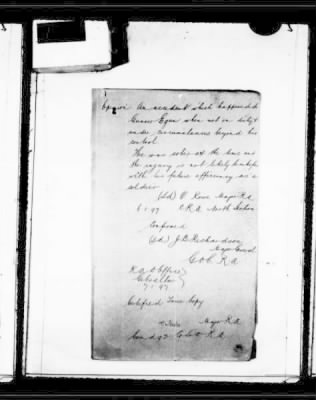 Opinion An accident which happened to
Gunner Egan when not on duty &
under circumstances beyond his
control.
He was sober at the time and
the injury is not likely to interfere
with his future efficiency as a
soldier
(Sd) Rowe Major R.A
6.1.97 C.R.A North
Confirmed
(Sd) J.B. Richardson
Major General
G.O.C. R.A
R.A. Office
Gibraltar
7.1.97
Certified True Copy
Major R.A
R.A